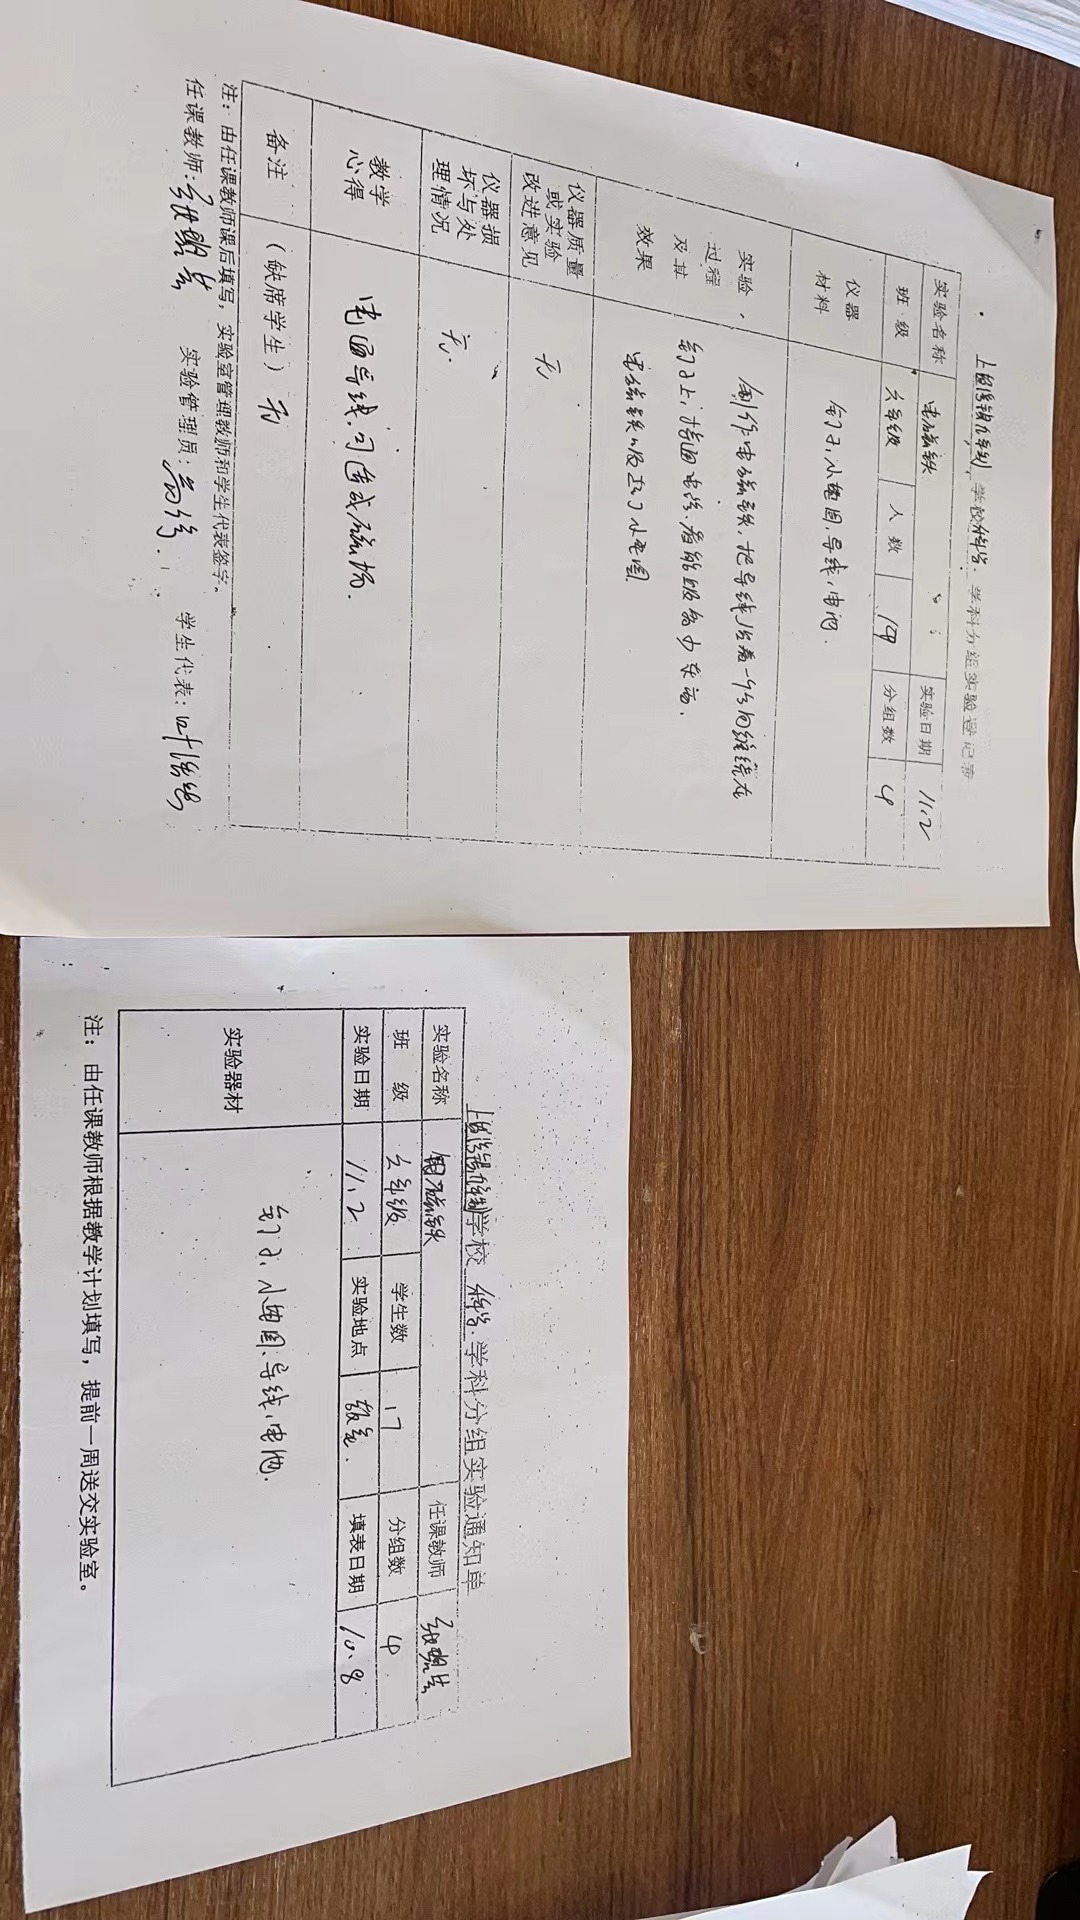 学校 科学 学科分组实验登记表
实验名称 电磁铁 实验日期 11.2
班 级 六年级 人 数 19 分组数 4
仪器材料 钉子、小电图、导线、电池.
实验过程及其效果 制作电磁铁,把导线沿着一个方向缠绕在
钉子上,接通电路.看能吸多少东西.
电磁铁吸
仪器质量或实验改进意见 无
仪器损坏与处理情况 无.
教学心得 电通导线.可造成磁场.
备注 (缺席学生) 无
注:由任课教师课后填写,实验室管理教师和学生代表签字。
任课教师: 实验管理员: 学生代表:
学校 科学 学科分组实验通知单
实验名称 电磁铁 任课教师
班 级 六年级 学生数 17 分组数 4
实验日期 11.2 实验地点 填表日期 10.8
实验器材 钉子、小电图、导线、电池.
注:由任课教师根据教学计划填写,提前一周送交实验室。